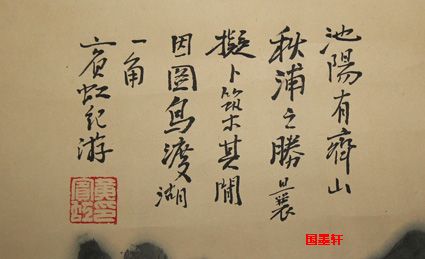 池陽有齊山
秋浦之勝曩
擬卜筑于其間
因圖烏渡湖
一角
賓虹紀游
国墨轩